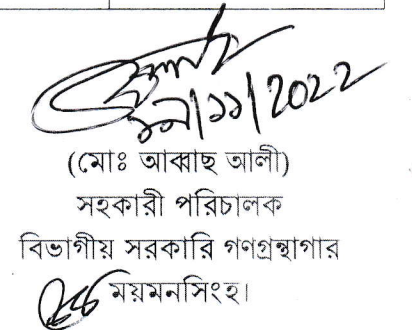 ১৯/১১/2022
(মোঃ আব্বাছ আলী)
সহকারী পরিচালক
বিভাগীয় সরকারি গণগ্রন্থাগার
ময়মনসিংহ।